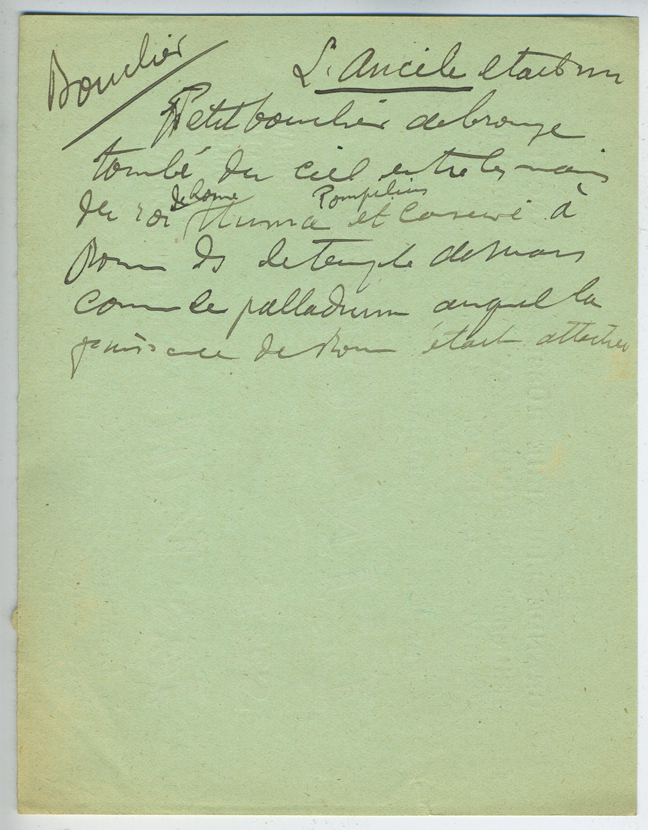 Bouclier
L'Ancile etait un
Petit bouclier de bronze
tombé du ciel entre les mains
de Rome Pompilius
du roi Numa et conservé à
Rome ds le temple de Mars
comme le palladium auquel la
puissance de Rome était attachée